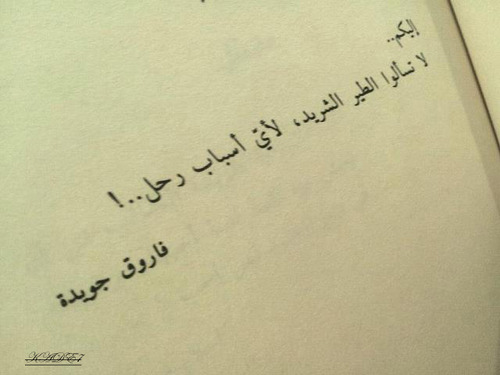 إليكم..
لا تسألوا الطير الشريد، لأيّ أسباب رحل..!
فاروق جويدة